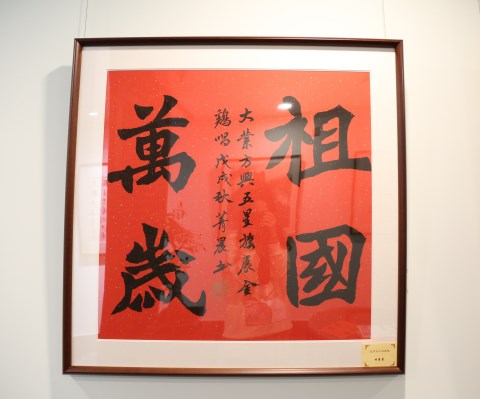 祖國
萬歲
大業方興五星旗展金
鷄唱戊戌秋菁晨書